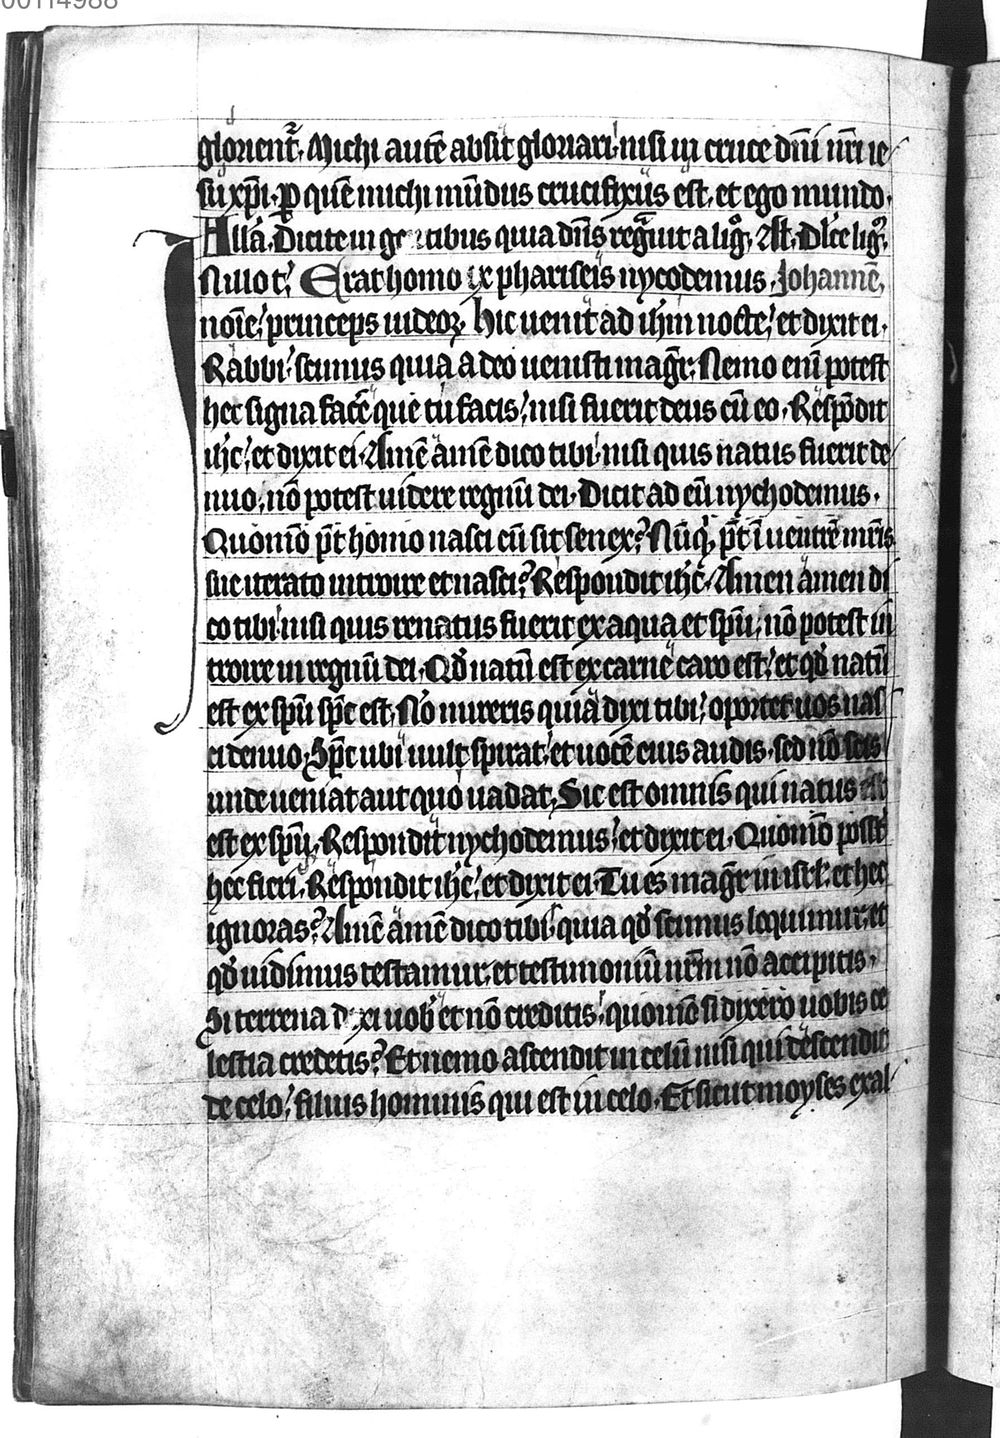 00114988
glorient᷑. Michi autē absit gloriari nisi in cruce dn̄i nr̄i ie
su xp̄i. ꝑ quē michi mūdus crucifixus est. et ego mundo.
Allā. Dicite in gentibus quia dn̄s regͣuit a ligͦ. Aꝉꝉ. Dulce ligͦ.
Nullo t᷑. Erat homo ex phariseis nycodemus Johannē.
noīe. princeps iudeoꝝ. hic uenit ad ih̄m nocte. et dixit ei.
Rabbi scimus quia a deo uenisti maḡr. Nemo enī potest
hec signa facē que tu facis. nisi fuerit deus cū eo. Respōdit
ih̄c. et dixit ei. Amē amē dico tibi nisi quis natus fuerit de
nuo. nō potest uidere regnū dei. Dicit ad eū nychodemus.
Quomō pt̄ homo nasci cū sit senex? Nūqͥd pt̄ ī uentrē mr̄is
sue iterato introire et nasci? Respondit ih̄c. Amen amen di
co tibi nisi quis renatus fuerit ex aqua et spū. nō potest in
troire in regnū dei. Qđ natū est ex carne caro est. et qđ natū
est ex spū sp̄c est. Nō mireris quia dixi tibi oportet uos nas
ci denuo. Sp̄c ubi uult spirat. et uocē eius audis. sed nō scis
unde ueniat aut quo uadat. Sic est omnis qui natus est
est ex spū. Respondit nychodemus. et dixit ei. Quomō posst̄
hec fieri. Respondit ih̄c. et dixit ei. Tu es maḡr in isrl̄. et hec
ignoras? Amē amē dico tibi quia qđ scimus loquimur. et
qđ uidimus testamur. et testimoniū nr̄m nō accipitis.
Si terrena dixi uobᷤ et nō creditis. quomō si dixero uobis ce
lestia credetis? Et nemo ascendit in celū nisi qui descendit
de celo. filius hominis qui est in celo. Et sicut moyses exal